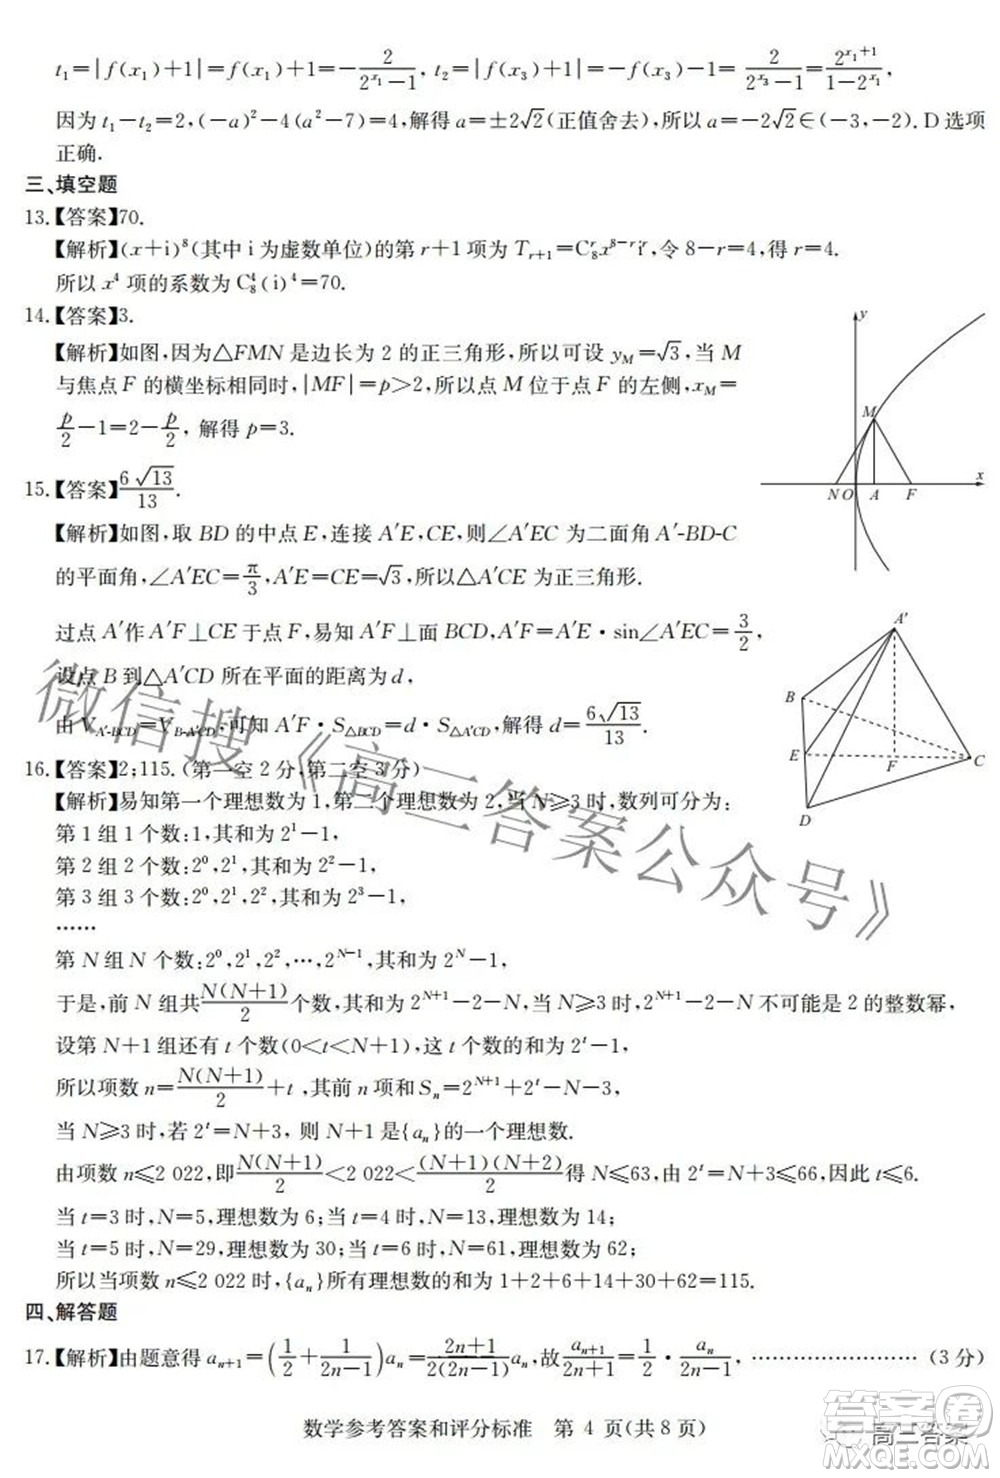 t₁=|f(x₁)+1|=f(x₁)+1=-2/(2^{x₁}-1), t₂=|f(x₃)+1|=-f(x₃)-1=2/(2^{x₃}-1)=2^{x₁+1}/(1-2^{x₁}),
因为 t₁-t₂=2,(-a)²-4(a²-7)=4,解得 a=±2√2(正值舍去),所以 a=-2√2∈(-3,-2). D 选项
正确.
三、填空题
13.【答案】70.
【解析】(x+i)⁸(其中 i 为虚数单位)的第 r+1 项为 T_{r+1}=C₈^r x^{8-r}i^r,令 8-r=4,得 r=4.
所以 x⁴ 项的系数为 C₈⁴(i)⁴=70.
14.【答案】3.
【解析】如图,因为△FMN 是边长为 2 的正三角形,所以可设 y_M=√3,当 M
与焦点 F 的横坐标相同时,|MF|=p>2,所以点 M 位于点 F 的左侧,x_M=
p/2-1=2-p/2, 解得 p=3.
y
M
x
N O A F
15.【答案】6√13/13.
【解析】如图,取 BD 的中点 E,连接 A′E,CE,则∠A′EC 为二面角 A′-BD-C
的平面角,∠A′EC=π/3,A′E=CE=√3,所以△A′CE 为正三角形.
过点 A′作 A′F⊥CE 于点 F,易知 A′F⊥面 BCD,A′F=A′E·sin∠A′EC=3/2,
设点 B 到△A′CD 所在平面的距离为 d,
由 V_{A′-BCD}=V_{B-A′CD},可知 A′F·S_{△BCD}=d·S_{△A′CD},解得 d=6√13/13.
A′
B
E
F
C
D
16.【答案】2;115.(第一空 2 分,第二空 3 分)
【解析】易知第一个理想数为 1,第二个理想数为 2,当 N≥3 时,数列可分为:
第 1 组 1 个数:1,其和为 2¹-1,
第 2 组 2 个数:2⁰,2¹,其和为 2²-1,
第 3 组 3 个数:2⁰,2¹,2²,其和为 2³-1,
……
第 N 组 N 个数:2⁰,2¹,2²,…,2^{N-1},其和为 2^N-1,
于是,前 N 组共 N(N+1)/2 个数,其和为 2^{N+1}-2-N,当 N≥3 时,2^{N+1}-2-N 不可能是 2 的整数幂,
设第 N+1 组还有 t 个数(0<t<N+1),这 t 个数的和为 2^t-1,
所以项数 n=N(N+1)/2+t ,其前 n 项和 S_n=2^{N+1}+2^t-N-3,
当 N≥3 时,若 2^t=N+3, 则 N+1 是{a_n}的一个理想数.
由项数 n≤2 022,即 N(N+1)/2<2 022<(N+1)(N+2)/2 得 N≤63,由 2^t=N+3≤66,因此 t≤6.
当 t=3 时,N=5,理想数为 6;当 t=4 时,N=13,理想数为 14;
当 t=5 时,N=29,理想数为 30;当 t=6 时,N=61,理想数为 62;
所以当项数 n≤2 022 时,{a_n}所有理想数的和为 1+2+6+14+30+62=115.
四、解答题
17.【解析】由题意得 a_{n+1}=(1/2+1/(2n-1))a_n=(2n+1)/(2(2n-1))a_n,故 a_{n+1}/(2n+1)=1/2·a_n/(2n-1), ……………………(3 分)
数学参考答案和评分标准 第 4 页(共 8 页)
微信搜《高三答案公众号》
高三答案